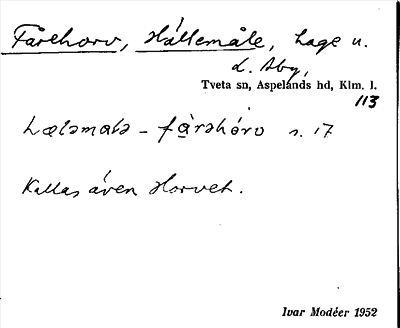 Fårehorv, Hällemåle, hage u.
L. Aby,
Tveta sn, Aspelands hd, Klm. l.
113
hælǝmalǝ - fa̱rǝhórv s. 17
Kallas även Horvet.
Ivar Modéer 1952